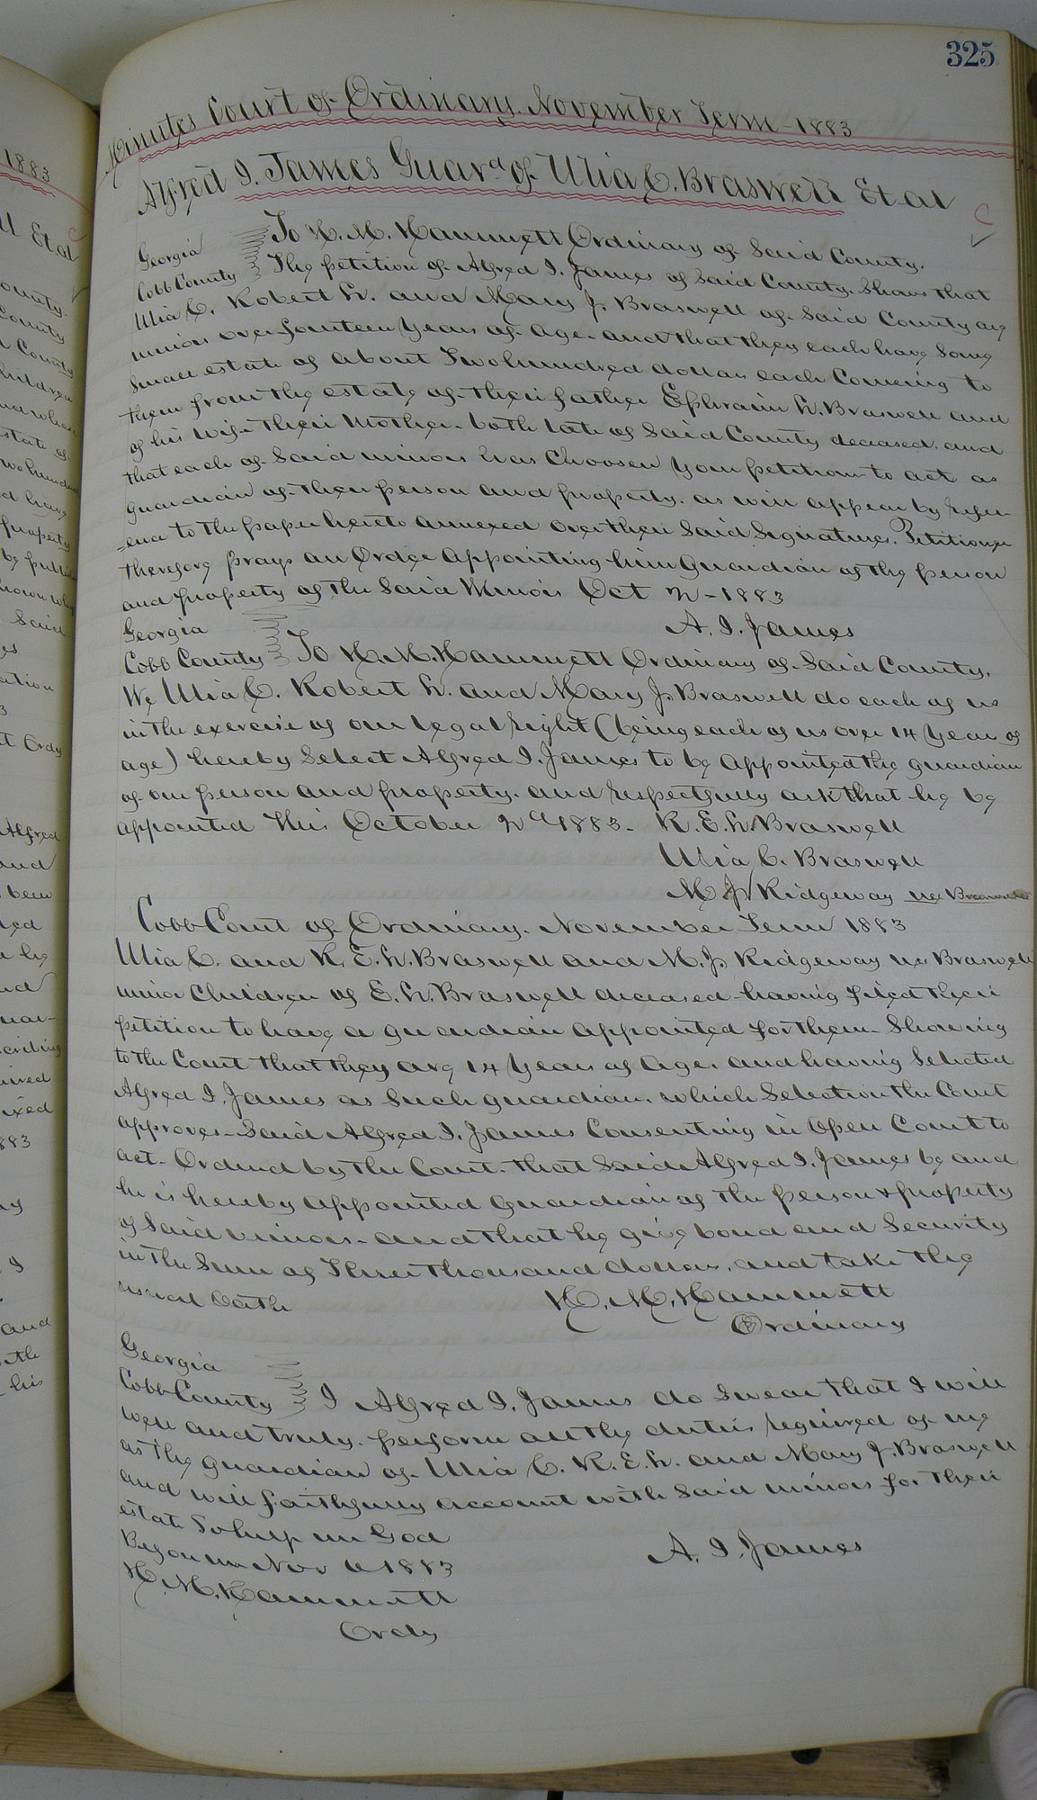 325
Minutes Court of Ordinary. November Term 1883
Alfred I. James Guard of Ulia C. Braswell Et al
Georgia To H. M. Hammett Ordinary of Said County.
Cobb County The petition of Alfred I. James of Said County. Shows that
Ulia C. Robert L. and Mary J. Braswell of Said County are
minors over fourteen years of age. and that they each have Some
Small estate of about Two hundred dollars each Comeing to
them from the estate of their father Ephraim L. Braswell and
of his wife their Mother. both late of Said County deceased. and
that each of Said minors has Choosen your petitioner to act as
guardian of their person and property. as will appear by refer-
-ence to the paper hereto annexed over their Said Signatures. Petitioner
therefore prays an Order Appointing him Guardian of the person
and property of the Said Minors Oct 2 - 1883
A. I. James
Georgia
Cobb County To H. M. Hammett Ordinary of Said County.
We Ulia C. Robert L. and Mary J. Braswell do each of us
in the exercise of our legal right (being each of us over 14 years of
age) hereby Select Alfred I. James to be appointed the guardian
of our person and property. and respectfully ask that he be
appointed This October 2d 1883. R. E. L. Braswell
Ulia C. Braswell
M J Ridgeway nee Braswell
Cobb Court of Ordinary. November Term 1883
Ulia C. and R. E. L. Braswell and M. J. Ridgeway nee Braswell
minor Children of E. L. Braswell deceased having filed their
petition to have a guardian appointed for them Showing
to the Court that they are 14 years of age. and having Selected
Alfred I. James as Such guardian. which Selection the Court
approves - Said Alfred I. James Consenting in Open Court to
act. Ordered by the Court. that Said Alfred I. James be and
he is hereby appointed guardian of the person & property
of Said minors - and that he give bond and Security
in the Sum of Three thousand dollars. and take the
usual Oath H. M. Hammett
Ordinary
Georgia
Cobb County I Alfred I. James do Swear that I will
well and truly. perform all the duties required of me
as the guardian of Ulia C. R. E. L. and Mary J. Braswell
and will faithfully account with Said minors for their
estate So help me God
Before me Nov 6 1883 A. I. James
H. M. Hammett
Ordy